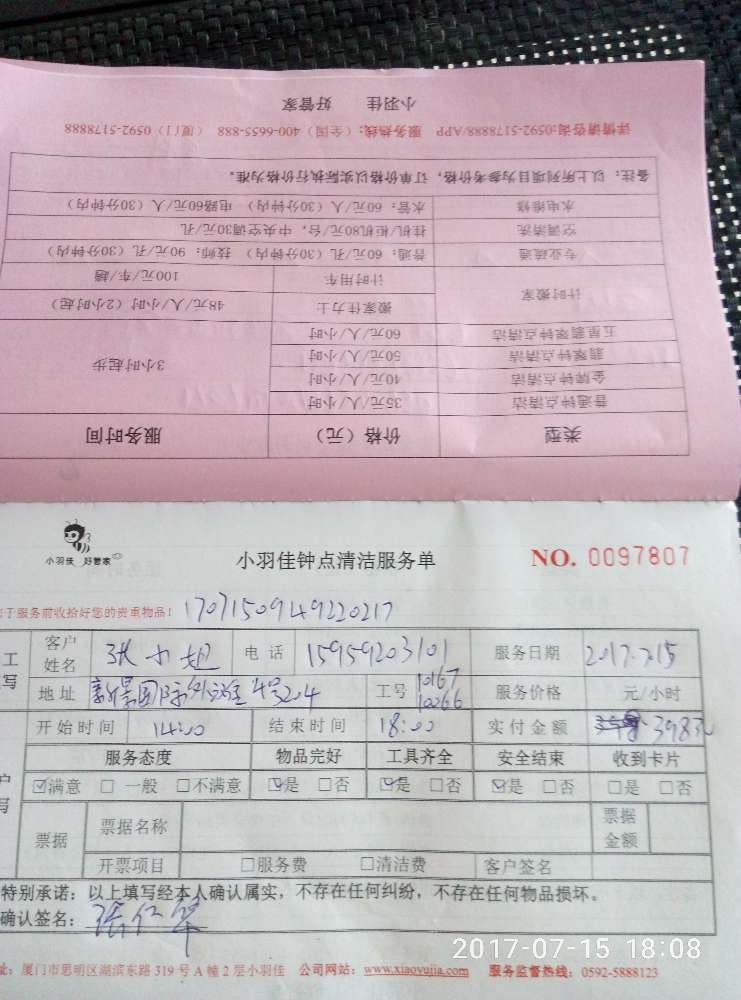 小羽佳 好管家
详情请咨询:0592-5178888/APP 服务热线：（全国）400-6655-888 （厦门）0592-5178888
备注：以上所列项目为参考价格，订单价格以实际执行价格为准。
水电维修 水管：60元/人（30分钟内） 电路60元/人（30分钟内）
空调清洗 挂机/柜机80元/台，中央空调30元/孔
专业疏通 普通：60元/孔（30分钟内） 技师：90元/孔（30分钟内）
计时搬家 计时用车 100元/车/趟
搬家佳力士 48元/人/小时（2小时起）
五星翡翠钟点清洁 60元/人/小时 3小时起步
翡翠钟点清洁 50元/人/小时
金牌钟点清洁 40元/人/小时
普通钟点清洁 35元/人/小时
类型 价格（元） 服务时间
小羽佳 好管家
小羽佳钟点清洁服务单 NO. 0097807
于服务前收拾好您的贵重物品！ 1707150949220217
工 客户姓名 张小姐 电话 15959203101 服务日期 2017.7.15
写 地址 新景国际外滩4号204 工号 10167 10066 服务价格 元/小时
开始时间 14:00 结束时间 18:00 实付金额 398元
服务态度 物品完好 工具齐全 安全结束 收到卡片
☑满意 □一般 □不满意 ☑是 □否 ☑是 □否 ☑是 □否 □是 □否
户 写 票据 票据名称 票据金额
开票项目 □服务费 □清洁费 客户签名
特别承诺：以上填写经本人确认属实，不存在任何纠纷，不存在任何物品损坏。
确认签名：
2017-07-15 18:08
址：厦门市思明区湖滨东路319号A幢2层小羽佳 公司网站：www.xiaoyujia.com 服务监督热线：0592-5888123